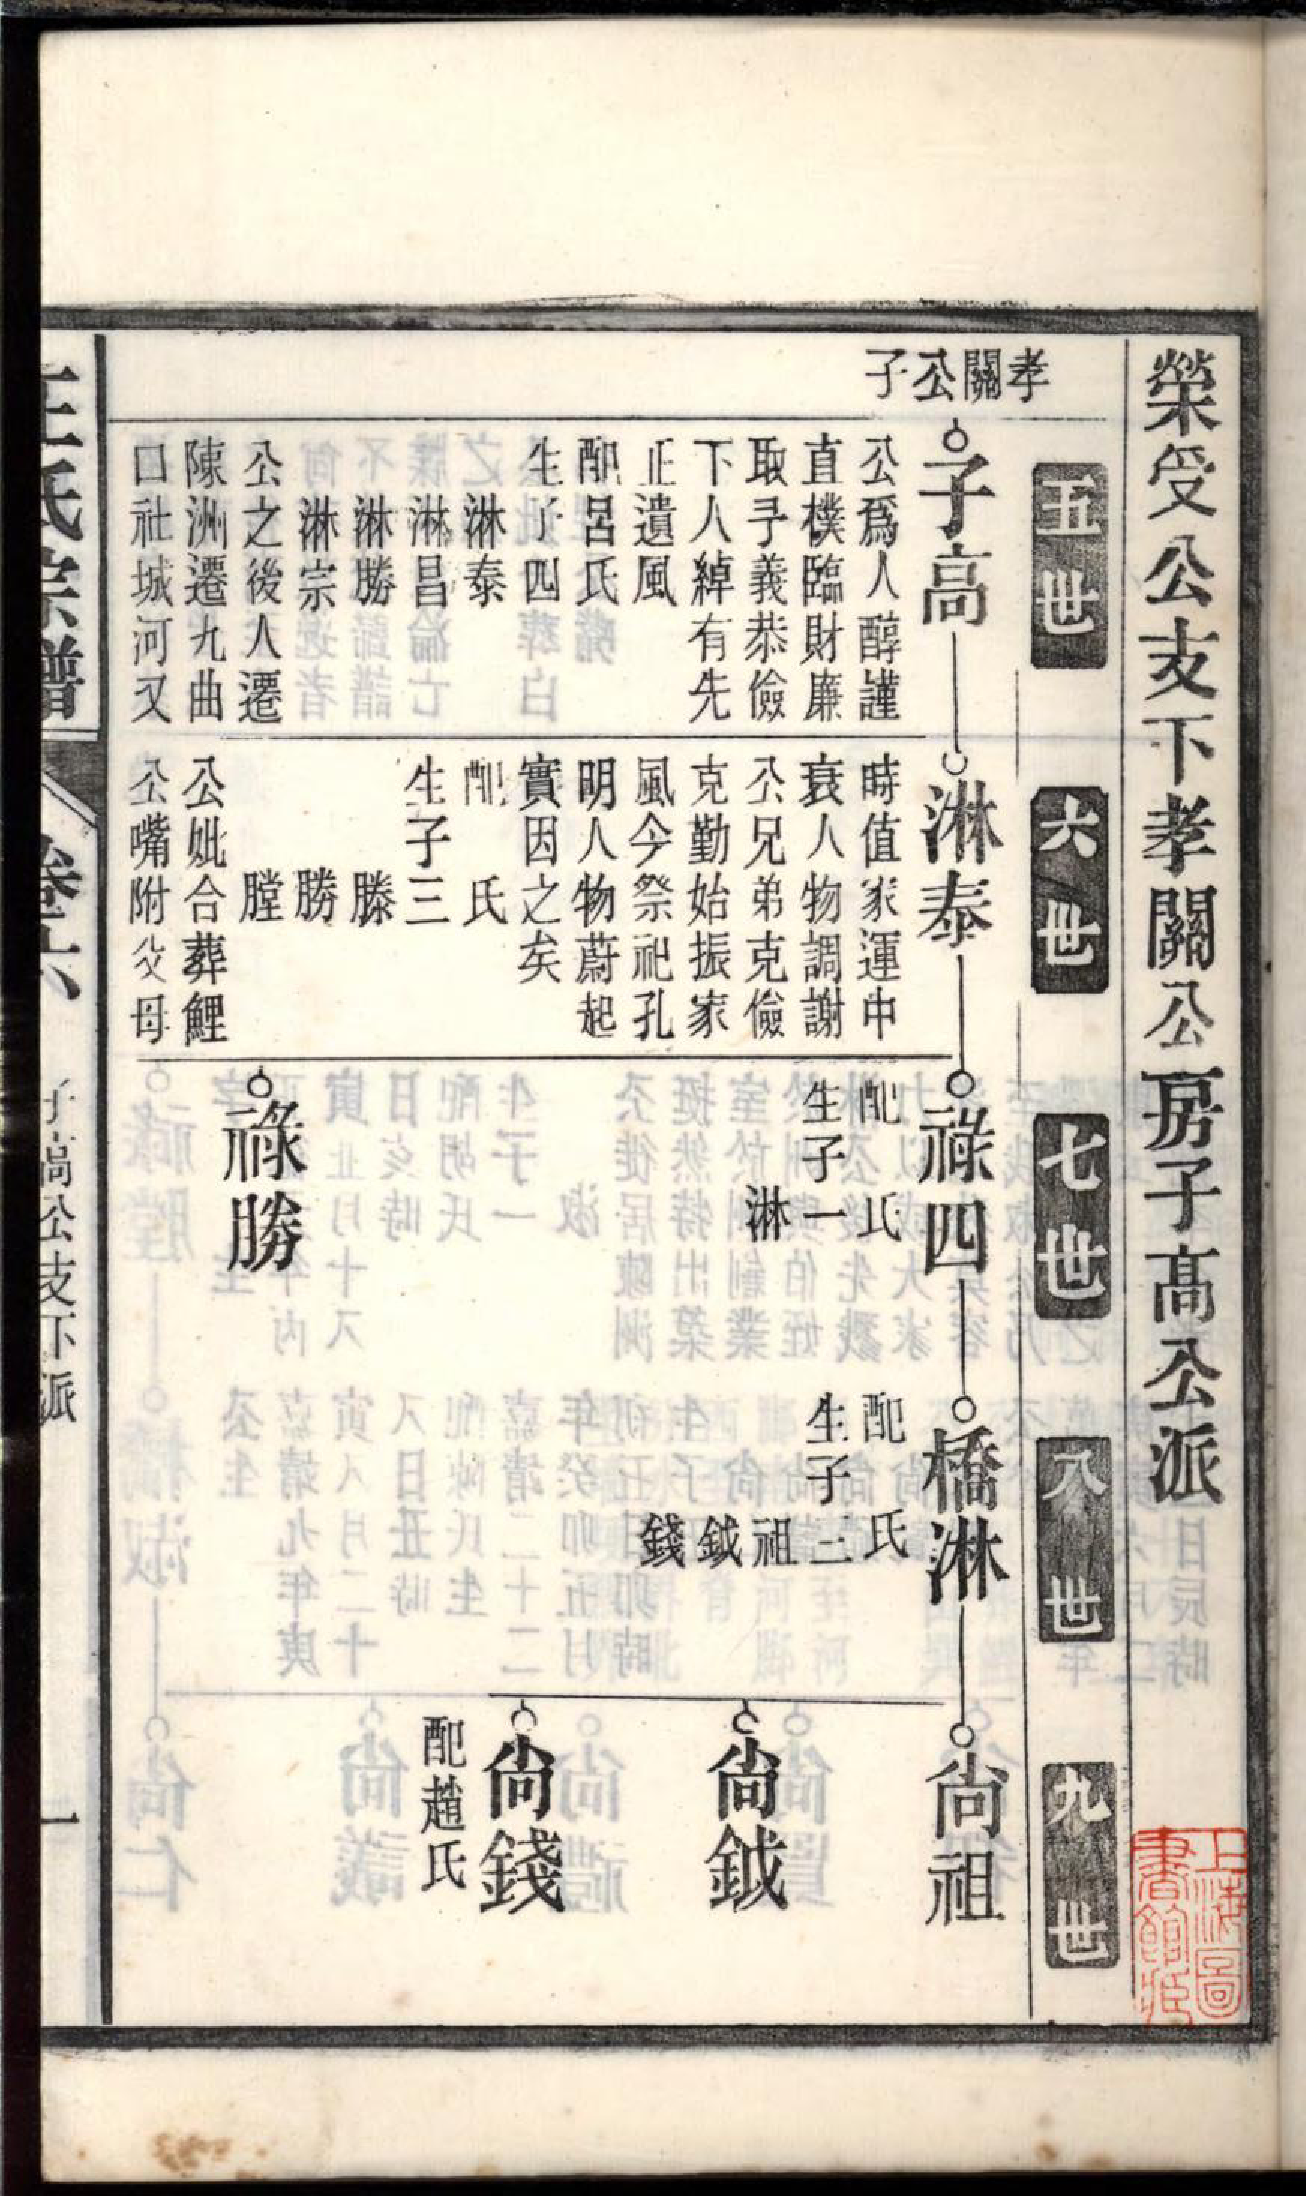 榮受公支下孝關公房子高公派
五世
六世
七世
八世
九世
孝關公子
子高
公爲人醇謹
直樸臨財廉
取予義恭儉
下人綽有先
正遺風
配呂氏
生子四
淋泰
淋昌
淋勝
淋宗
公之後人遷
陳洲遷九曲
口社城河又
淋泰
時值家運中
衰人物調謝
公兄弟克儉
克勤始振家
風今祭祀孔
明人物蔚起
實因之矣
配 氏
生子三
滕
勝
膛
公妣合葬鯉
公嘴附父母
祿四
配 氏
生子一
淋
祿勝
橋淋
配 氏
生子三
祖
鉞
錢
尙祖
尙鉞
尙錢
配趙氏
王氏宗譜
卷六
子高公支下派
一
上海圖
書館藏